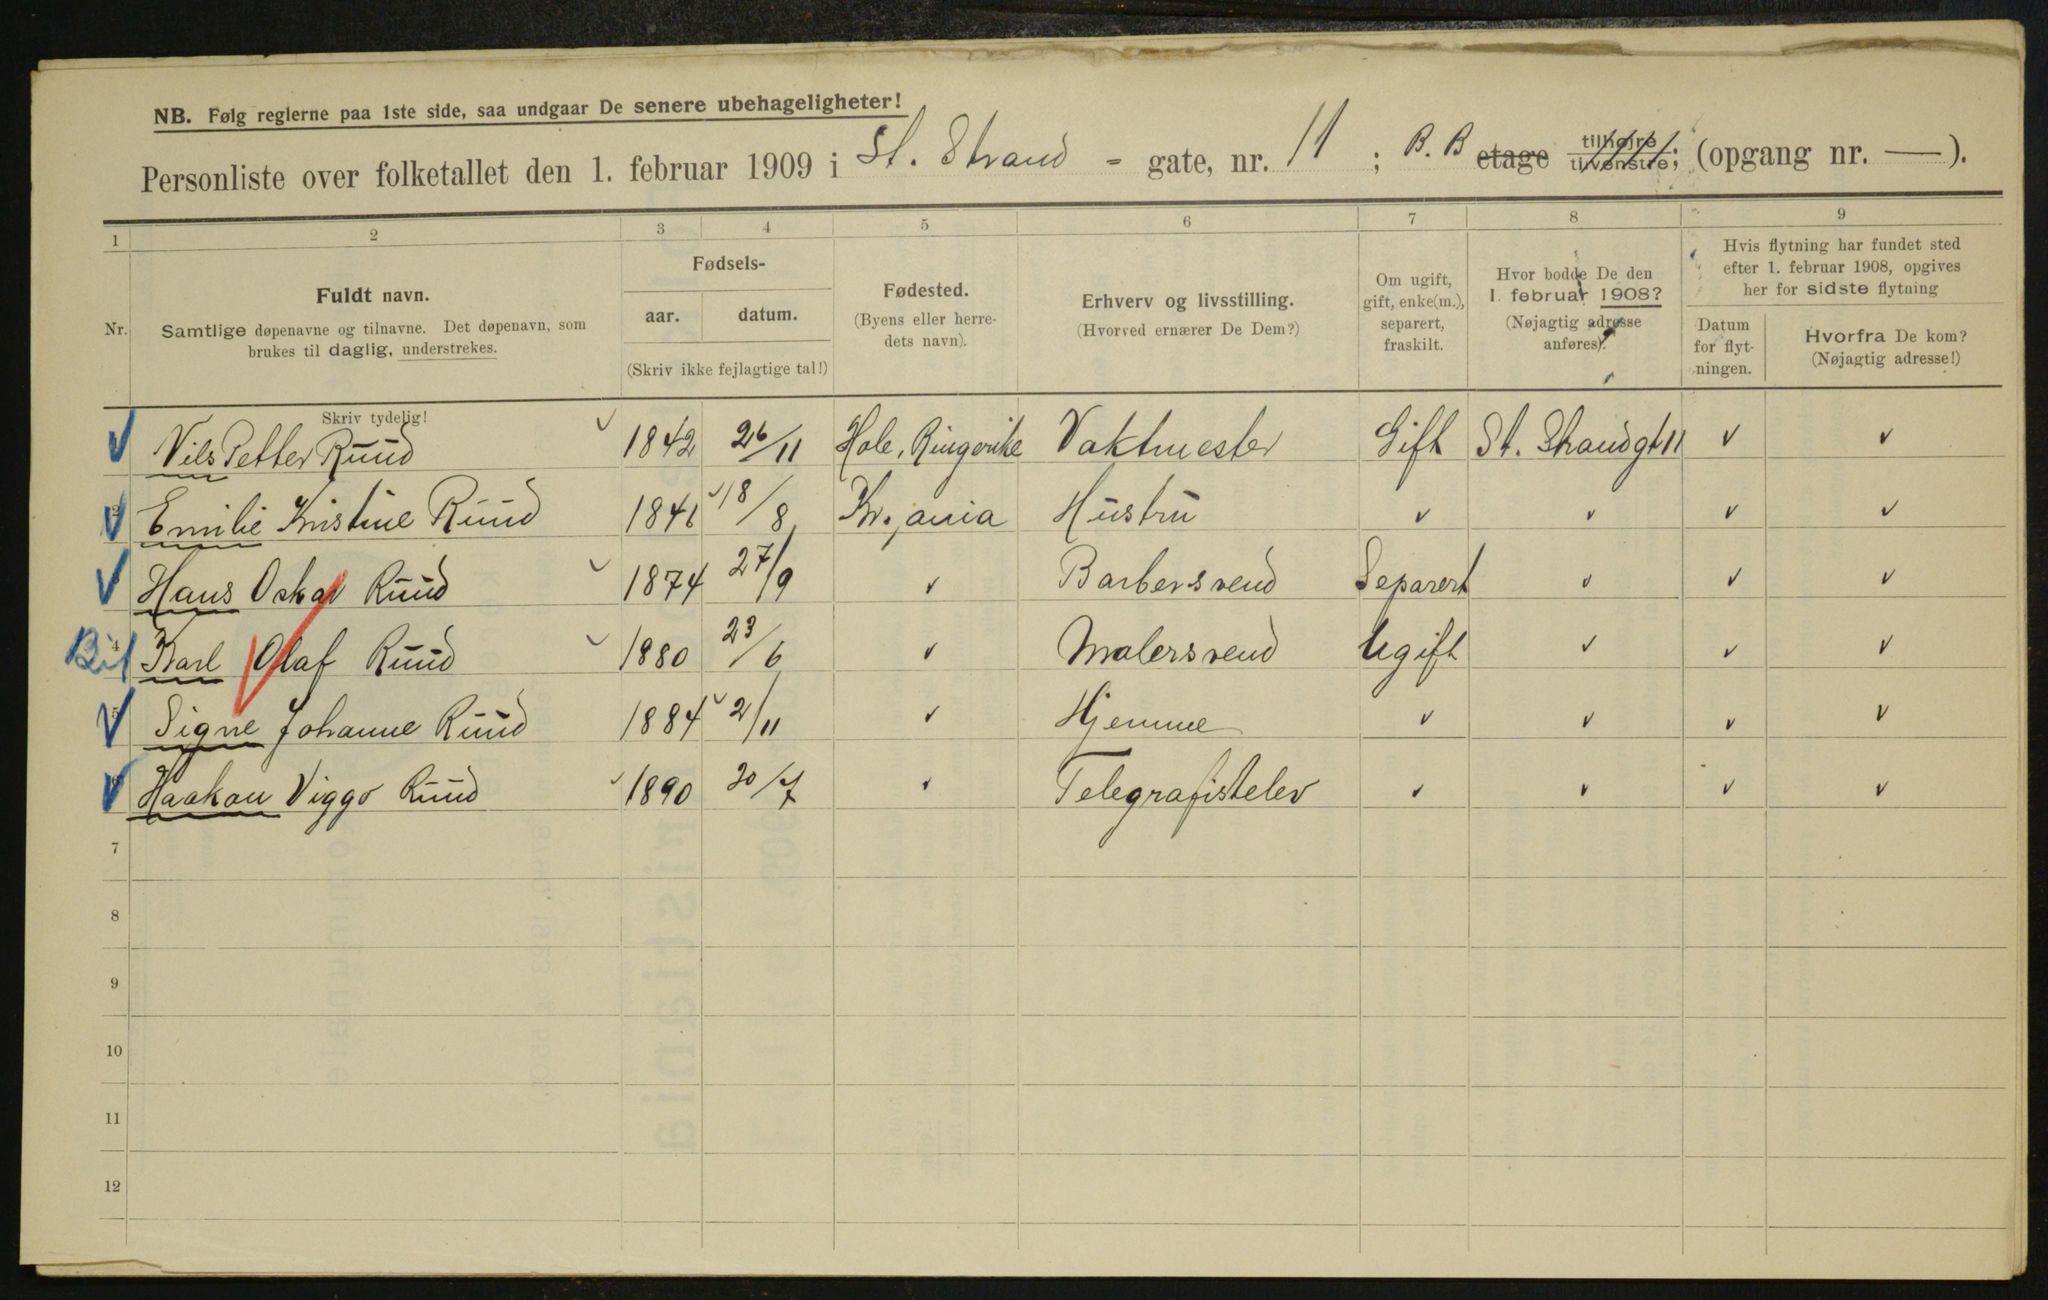 NB. Følg reglerne paa 1ste side, saa undgaar De senere ubehageligheter!
Personliste over folketallet den 1. februar 1909 i St. Strand - gate, nr. 11 ; B. B etage tilhøire tilvenstre; (opgang nr. — ).
1 2 3 4 5 6 7 8 9
Nr. Fuldt navn. Samtlige døpenavne og tilnavne. Det døpenavn, som brukes til daglig, understrekes. Skriv tydelig!
Fødsels- aar. datum. (Skriv ikke fejlagtige tal!)
Fødested. (Byens eller herredets navn).
Erhverv og livsstilling. (Hvorved ernærer De Dem?)
Om ugift, gift, enke(m.), separert, fraskilt.
Hvor bodde De den 1. februar 1908? (Nøjagtig adresse anføres).
Hvis flytning har fundet sted efter 1. februar 1908, opgives her for sidste flytning
Datum for flytningen. Hvorfra De kom? (Nøjagtig adresse!)
Nils Petter Ruud 1842 26/11 Hole, Ringerike Vaktmester Gift St. Strandgt 11 v v
2 Emilie Kristine Ruud 1846 18/8 Kr.jania Hustru v v v v
3 Hans Oskar Ruud 1874 27/9 v Barbersvend Separert v v v
4 Karl Olaf Ruud 1880 23/6 v Malersvend Ugift v v v
5 Signe Johanne Ruud 1884 2/11 v Hjemme v v v v
6 Haakon Viggo Ruud 1890 20/7 v Telegrafistelev v v v v
7
8
9
10
11
12